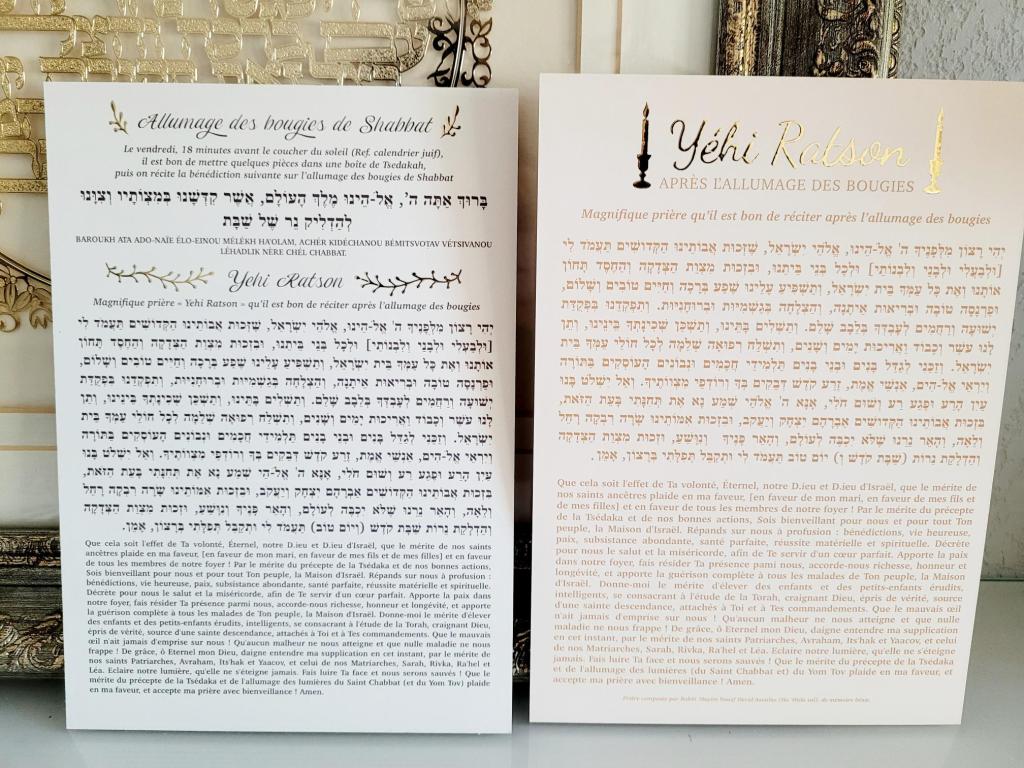 Allumage des bougies de Shabbat
Le vendredi, 18 minutes avant le coucher du soleil (Ref. calendrier juif),
il est bon de mettre quelques pièces dans une boîte de Tsedakah,
puis on récite la bénédiction suivante sur l'allumage des bougies de Shabbat
בָּרוּךְ אַתָּה ה', אֱל-הֵינוּ מֶלֶךְ הָעוֹלָם, אֲשֶׁר קִדְּשָׁנוּ בְּמִצְוֹתָיו וְצִוָּנוּ
לְהַדְלִיק נֵר שֶׁל שַׁבָּת
BAROUKH ATA ADO-NAÏE ÉLO-EINOU MÉLÉKH HA'OLAM, ACHÉR KIDÉCHANOU BÉMITSVOTAV VÉTSIVANOU
LÉHADLIK NÈRE CHÉL CHABBAT.
Yehi Ratson
Magnifique prière « Yehi Ratson » qu'il est bon de réciter après l'allumage des bougies
יְהִי רָצוֹן מִלְּפָנֶיךָ ה' אֱל-הֵינוּ, אֱלֹהֵי יִשְׂרָאֵל, שֶׁזְּכוּת אֲבוֹתֵינוּ הַקְּדוֹשִׁים תַּעֲמֹד לִי
[וּלְבַעְלִי וּלְבָנַי וְלִבְנוֹתַי] וּלְכָל בְּנֵי בֵּיתֵנוּ, וּבִזְכוּת מִצְוַת הַצְּדָקָה וְהַחֶסֶד תָּחוֹן
אוֹתָנוּ וְאֶת כָּל עַמְּךָ בֵּית יִשְׂרָאֵל, וְתַשְׁפִּיעַ עָלֵינוּ שֶׁפַע בְּרָכָה וְחַיִּים טוֹבִים וְשָׁלוֹם,
וּפַרְנָסָה טוֹבָה וּבְרִיאוּת אֵיתָנָה, וְהַצְלָחָה בְּגַשְׁמִיּוּת וּבְרוּחָנִיּוּת. וְתִפְקְדֵנוּ בִּפְקֻדַּת
יְשׁוּעָה וְרַחֲמִים לְעָבְדְּךָ בְּלֵבָב שָׁלֵם. וְתַשְׁלִים בָּתֵּינוּ, וְתַשְׁכֵּן שְׁכִינָתְךָ בֵּינֵינוּ, וְתֵן
לָנוּ עֹשֶׁר וְכָבוֹד וַאֲרִיכוּת יָמִים וְשָׁנִים, וְתִשְׁלַח רְפוּאָה שְׁלֵמָה לְכָל חוֹלֵי עַמְּךָ בֵּית
יִשְׂרָאֵל. וְזַכֵּנִי לְגַדֵּל בָּנִים וּבְנֵי בָנִים תַּלְמִידֵי חֲכָמִים וּנְבוֹנִים הָעוֹסְקִים בַּתּוֹרָה
וְיִרְאֵי אֱל-הִים, אַנְשֵׁי אֱמֶת, זֶרַע קֹדֶשׁ דְּבֵקִים בְּךָ וְרוֹדְפֵי מִצְוֹותֶיךָ. וְאַל יִשְׁלֹט בָּנוּ
עַיִן הָרַע וּפֶגַע רַע וְשׁוּם חֹלִי, אָנָּא ה' אֱלֹהַי שְׁמַע נָא אֶת תְּחִנָּתִי בָּעֵת הַזֹּאת,
בִּזְכוּת אֲבוֹתֵינוּ הַקְּדוֹשִׁים אַבְרָהָם יִצְחָק וְיַעֲקֹב, וּבִזְכוּת אִמּוֹתֵינוּ שָׂרָה רִבְקָה רָחֵל
וְלֵאָה, וְהָאֵר נֵרֵנוּ שֶׁלֹּא יִכְבֶּה לְעוֹלָם, וְהָאֵר פָּנֶיךָ וְנִוָּשֵׁעַ, וּזְכוּת מִצְוַת הַצְּדָקָה
וְהַדְלָקַת נֵרוֹת שַׁבָּת קֹדֶשׁ (וְיוֹם טוֹב) תַּעֲמֹד לִי וּתְקַבֵּל תְּפִלָּתִי בְּרָצוֹן, אָמֵן.
Que cela soit l'effet de Ta volonté, Éternel, notre D.ieu et D.ieu d'Israël, que le mérite de nos saints
ancêtres plaide en ma faveur, [en faveur de mon mari, en faveur de mes fils et de mes filles] et en faveur
de tous les membres de notre foyer ! Par le mérite du précepte de la Tsédaka et de nos bonnes actions,
Sois bienveillant pour nous et pour tout Ton peuple, la Maison d'Israël. Répands sur nous à profusion :
bénédictions, vie heureuse, paix, subsistance abondante, santé parfaite, réussite matérielle et spirituelle.
Décrète pour nous le salut et la miséricorde, afin de Te servir d'un cœur parfait. Apporte la paix dans
notre foyer, fais résider Ta présence parmi nous, accorde-nous richesse, honneur et longévité, et apporte
la guérison complète à tous les malades de Ton peuple, la Maison d'Israël. Donne-moi le mérite d'élever
des enfants et des petits-enfants érudits, intelligents, se consacrant à l'étude de la Torah, craignant Dieu,
épris de vérité, source d'une sainte descendance, attachés à Toi et à Tes commandements. Que le mauvais
œil n'ait jamais d'emprise sur nous ! Qu'aucun malheur ne nous atteigne et que nulle maladie ne nous
frappe ! De grâce, ô Eternel mon Dieu, daigne entendre ma supplication en cet instant, par le mérite de
nos saints Patriarches, Avraham, Its'hak et Yaacov, et celui de nos Matriarches, Sarah, Rivka, Ra'hel et
Léa. Eclaire notre lumière, qu'elle ne s'éteigne jamais. Fais luire Ta face et nous serons sauvés ! Que le
mérite du précepte de la Tsédaka et de l'allumage des lumières du Saint Chabbat (et du Yom Tov) plaide
en ma faveur, et accepte ma prière avec bienveillance ! Amen.
Yéhi Ratson
APRÈS L'ALLUMAGE DES BOUGIES
Magnifique prière qu'il est bon de réciter après l'allumage des bougies
יְהִי רָצוֹן מִלְּפָנֶיךָ ה' אֱל-הֵינוּ, אֱלֹהֵי יִשְׂרָאֵל, שֶׁזְּכוּת אֲבוֹתֵינוּ הַקְּדוֹשִׁים תַּעֲמֹד לִי
[וּלְבַעְלִי וּלְבָנַי וְלִבְנוֹתַי] וּלְכָל בְּנֵי בֵּיתֵנוּ, וּבִזְכוּת מִצְוַת הַצְּדָקָה וְהַחֶסֶד תָּחוֹן
אוֹתָנוּ וְאֶת כָּל עַמְּךָ בֵּית יִשְׂרָאֵל, וְתַשְׁפִּיעַ עָלֵינוּ שֶׁפַע בְּרָכָה וְחַיִּים טוֹבִים וְשָׁלוֹם,
וּפַרְנָסָה טוֹבָה וּבְרִיאוּת אֵיתָנָה, וְהַצְלָחָה בְּגַשְׁמִיּוּת וּבְרוּחָנִיּוּת. וְתִפְקְדֵנוּ בִּפְקֻדַּת
יְשׁוּעָה וְרַחֲמִים לְעָבְדְּךָ בְּלֵבָב שָׁלֵם. וְתַשְׁלִים בָּתֵּינוּ, וְתַשְׁכֵּן שְׁכִינָתְךָ בֵּינֵינוּ, וְתֵן
לָנוּ עֹשֶׁר וְכָבוֹד וַאֲרִיכוּת יָמִים וְשָׁנִים, וְתִשְׁלַח רְפוּאָה שְׁלֵמָה לְכָל חוֹלֵי עַמְּךָ בֵּית
יִשְׂרָאֵל. וְזַכֵּנִי לְגַדֵּל בָּנִים וּבְנֵי בָנִים תַּלְמִידֵי חֲכָמִים וּנְבוֹנִים הָעוֹסְקִים בַּתּוֹרָה
וְיִרְאֵי אֱל-הִים, אַנְשֵׁי אֱמֶת, זֶרַע קֹדֶשׁ דְּבֵקִים בְּךָ וְרוֹדְפֵי מִצְוֹותֶיךָ. וְאַל יִשְׁלֹט בָּנוּ
עַיִן הָרַע וּפֶגַע רַע וְשׁוּם חֹלִי, אָנָּא ה' אֱלֹהַי שְׁמַע נָא אֶת תְּחִנָּתִי בָּעֵת הַזֹּאת,
בִּזְכוּת אֲבוֹתֵינוּ הַקְּדוֹשִׁים אַבְרָהָם יִצְחָק וְיַעֲקֹב, וּבִזְכוּת אִמּוֹתֵינוּ שָׂרָה רִבְקָה רָחֵל
וְלֵאָה, וְהָאֵר נֵרֵנוּ שֶׁלֹּא יִכְבֶּה לְעוֹלָם, וְהָאֵר פָּנֶיךָ וְנִוָּשֵׁעַ, וּזְכוּת מִצְוַת הַצְּדָקָה
וְהַדְלָקַת נֵרוֹת (שַׁבָּת קֹדֶשׁ וְ) יוֹם טוֹב תַּעֲמֹד לִי וּתְקַבֵּל תְּפִלָּתִי בְּרָצוֹן, אָמֵן.
Que cela soit l'effet de Ta volonté, Éternel, notre D.ieu et D.ieu d'Israël, que le mérite de
nos saints ancêtres plaide en ma faveur, [en faveur de mon mari, en faveur de mes fils et
de mes filles] et en faveur de tous les membres de notre foyer ! Par le mérite du précepte
de la Tsédaka et de nos bonnes actions, Sois bienveillant pour nous et pour tout Ton
peuple, la Maison d'Israël. Répands sur nous à profusion : bénédictions, vie heureuse,
paix, subsistance abondante, santé parfaite, réussite matérielle et spirituelle. Décrète
pour nous le salut et la miséricorde, afin de Te servir d'un cœur parfait. Apporte la paix
dans notre foyer, fais résider Ta présence pami nous, accorde-nous richesse, honneur et
longévité, et apporte la guérison complète à tous les malades de Ton peuple, la Maison
d'Israël. Donne-moi le mérite d'élever des enfants et des petits-enfants érudits,
intelligents, se consacrant à l'étude de la Torah, craignant Dieu, épris de vérité, source
d'une sainte descendance, attachés à Toi et à Tes commandements. Que le mauvais œil
n'ait jamais d'emprise sur nous ! Qu'aucun malheur ne nous atteigne et que nulle
maladie ne nous frappe ! De grâce, ô Eternel mon Dieu, daigne entendre ma supplication
en cet instant, par le mérite de nos saints Patriarches, Avraham, Its'hak et Yaacov, et celui
de nos Matriarches, Sarah, Rivka, Ra'hel et Léa. Eclaire notre lumière, qu'elle ne s'éteigne
jamais. Fais luire Ta face et nous serons sauvés ! Que le mérite du précepte de la Tsédaka
et de l'allumage des lumières (du Saint Chabbat et) du Yom Tov plaide en ma faveur, et
accepte ma prière avec bienveillance ! Amen.